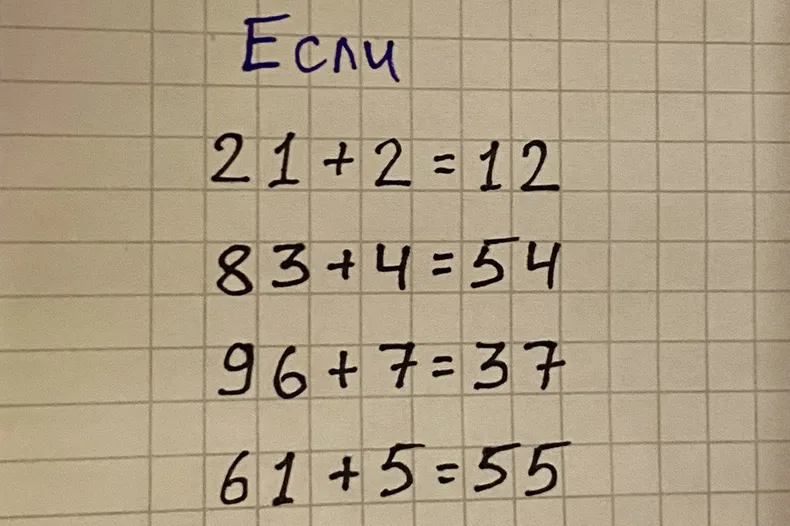 Если
21+2=12
83+4=54
96+7=37
61+5=55